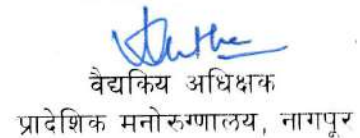 वैद्यकिय अधिक्षक
प्रादेशिक मनोरुग्णालय, नागपूर